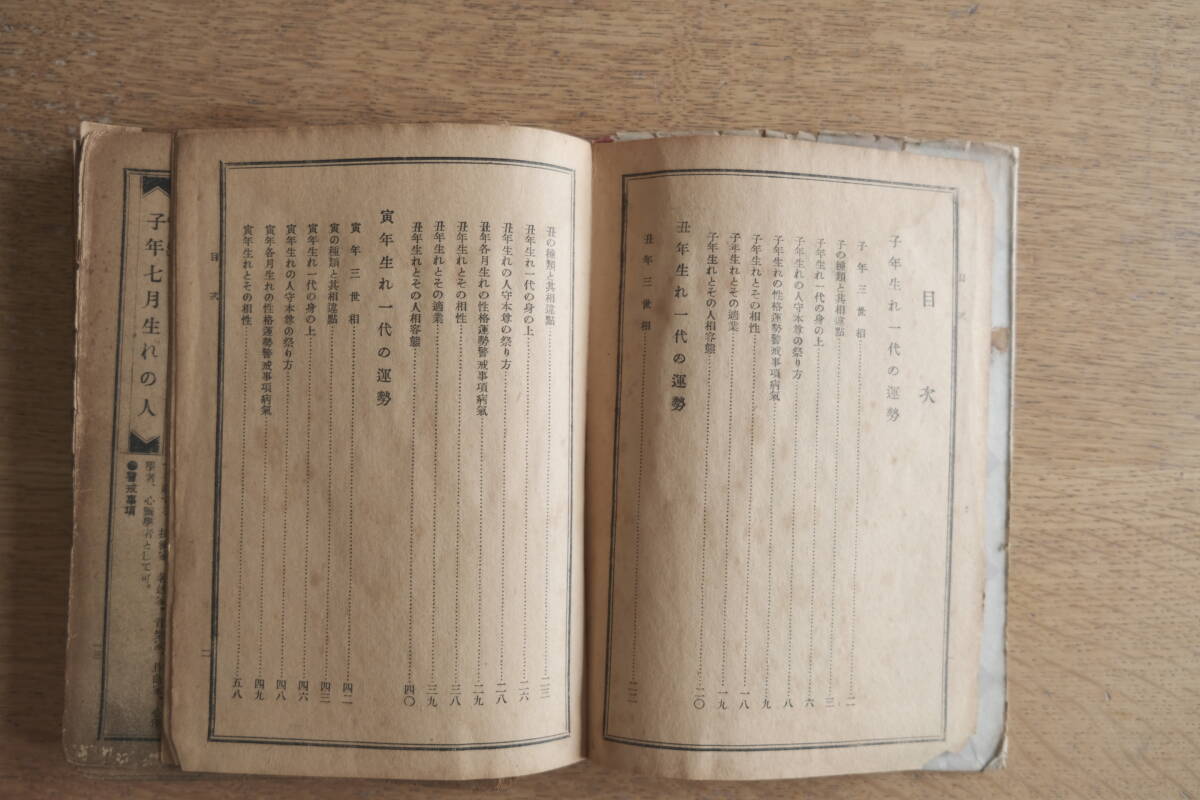 目次
子年生れ一代の運勢
子年三世相……二
子の種類と其相違點……三
子年生れ一代の身の上……六
子年生れの人守本尊の祭り方……八
子年各月生れの性格運勢警戒事項病氣……九
子年生れとその相性……一八
子年生れとその適業……一九
子年生れとその人相容態……二〇
丑年生れ一代の運勢
丑年三世相……二二
目次
丑の種類と其相違點……二三
丑年生れ一代の身の上……二六
丑年生れの人守本尊の祭り方……二八
丑年各月生れの性格運勢警戒事項病氣……二九
丑年生れとその相性……三八
丑年生れとその適業……三九
丑年生れとその人相容態……四〇
寅年生れ一代の運勢
寅年三世相……四二
寅の種類と其相違點……四三
寅年生れ一代の身の上……四六
寅年生れの人守本尊の祭り方……四八
寅年各月生れの性格運勢警戒事項病氣……四九
寅年生れとその相性……五八
目次
二
學者、心靈學者として可。
●警戒事項
子年七月生れの人